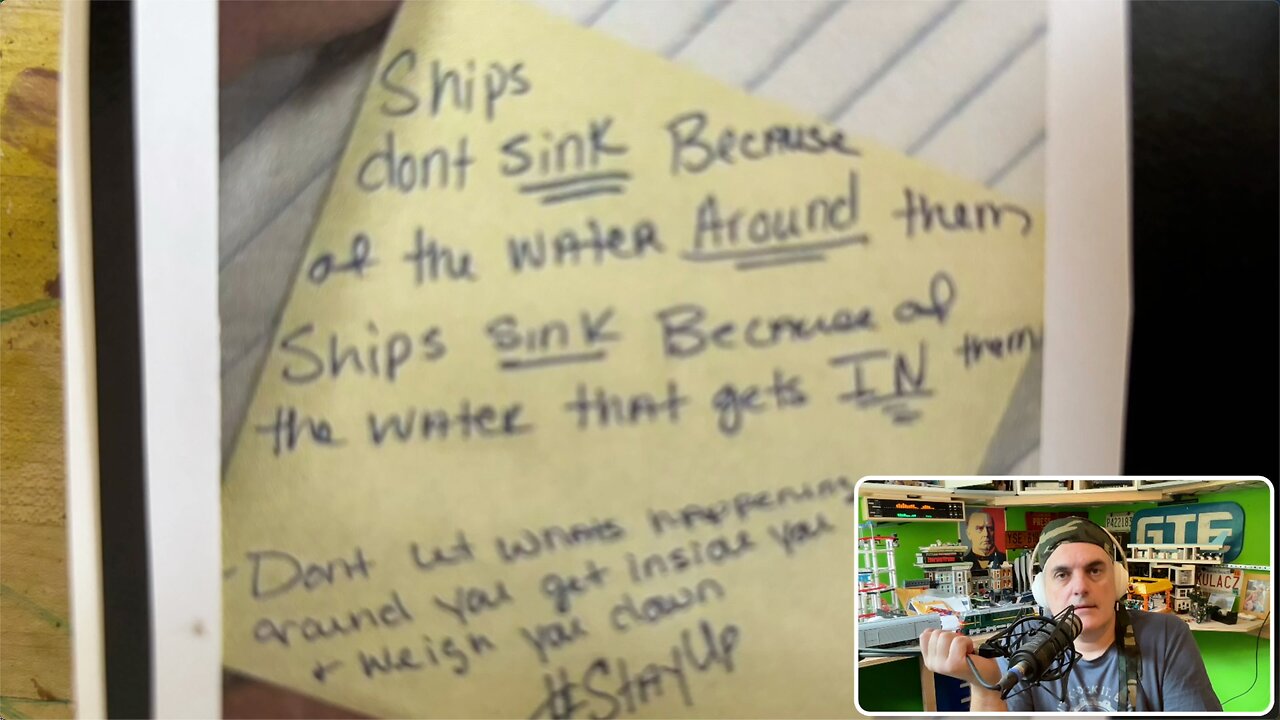 Ships
dont sink Because
of the water Around them
Ships sink Because of
the water that gets IN them
Dont let whats happening
around you get inside you
+ weigh you down
#StayUp
GTE
P422183
KULAC